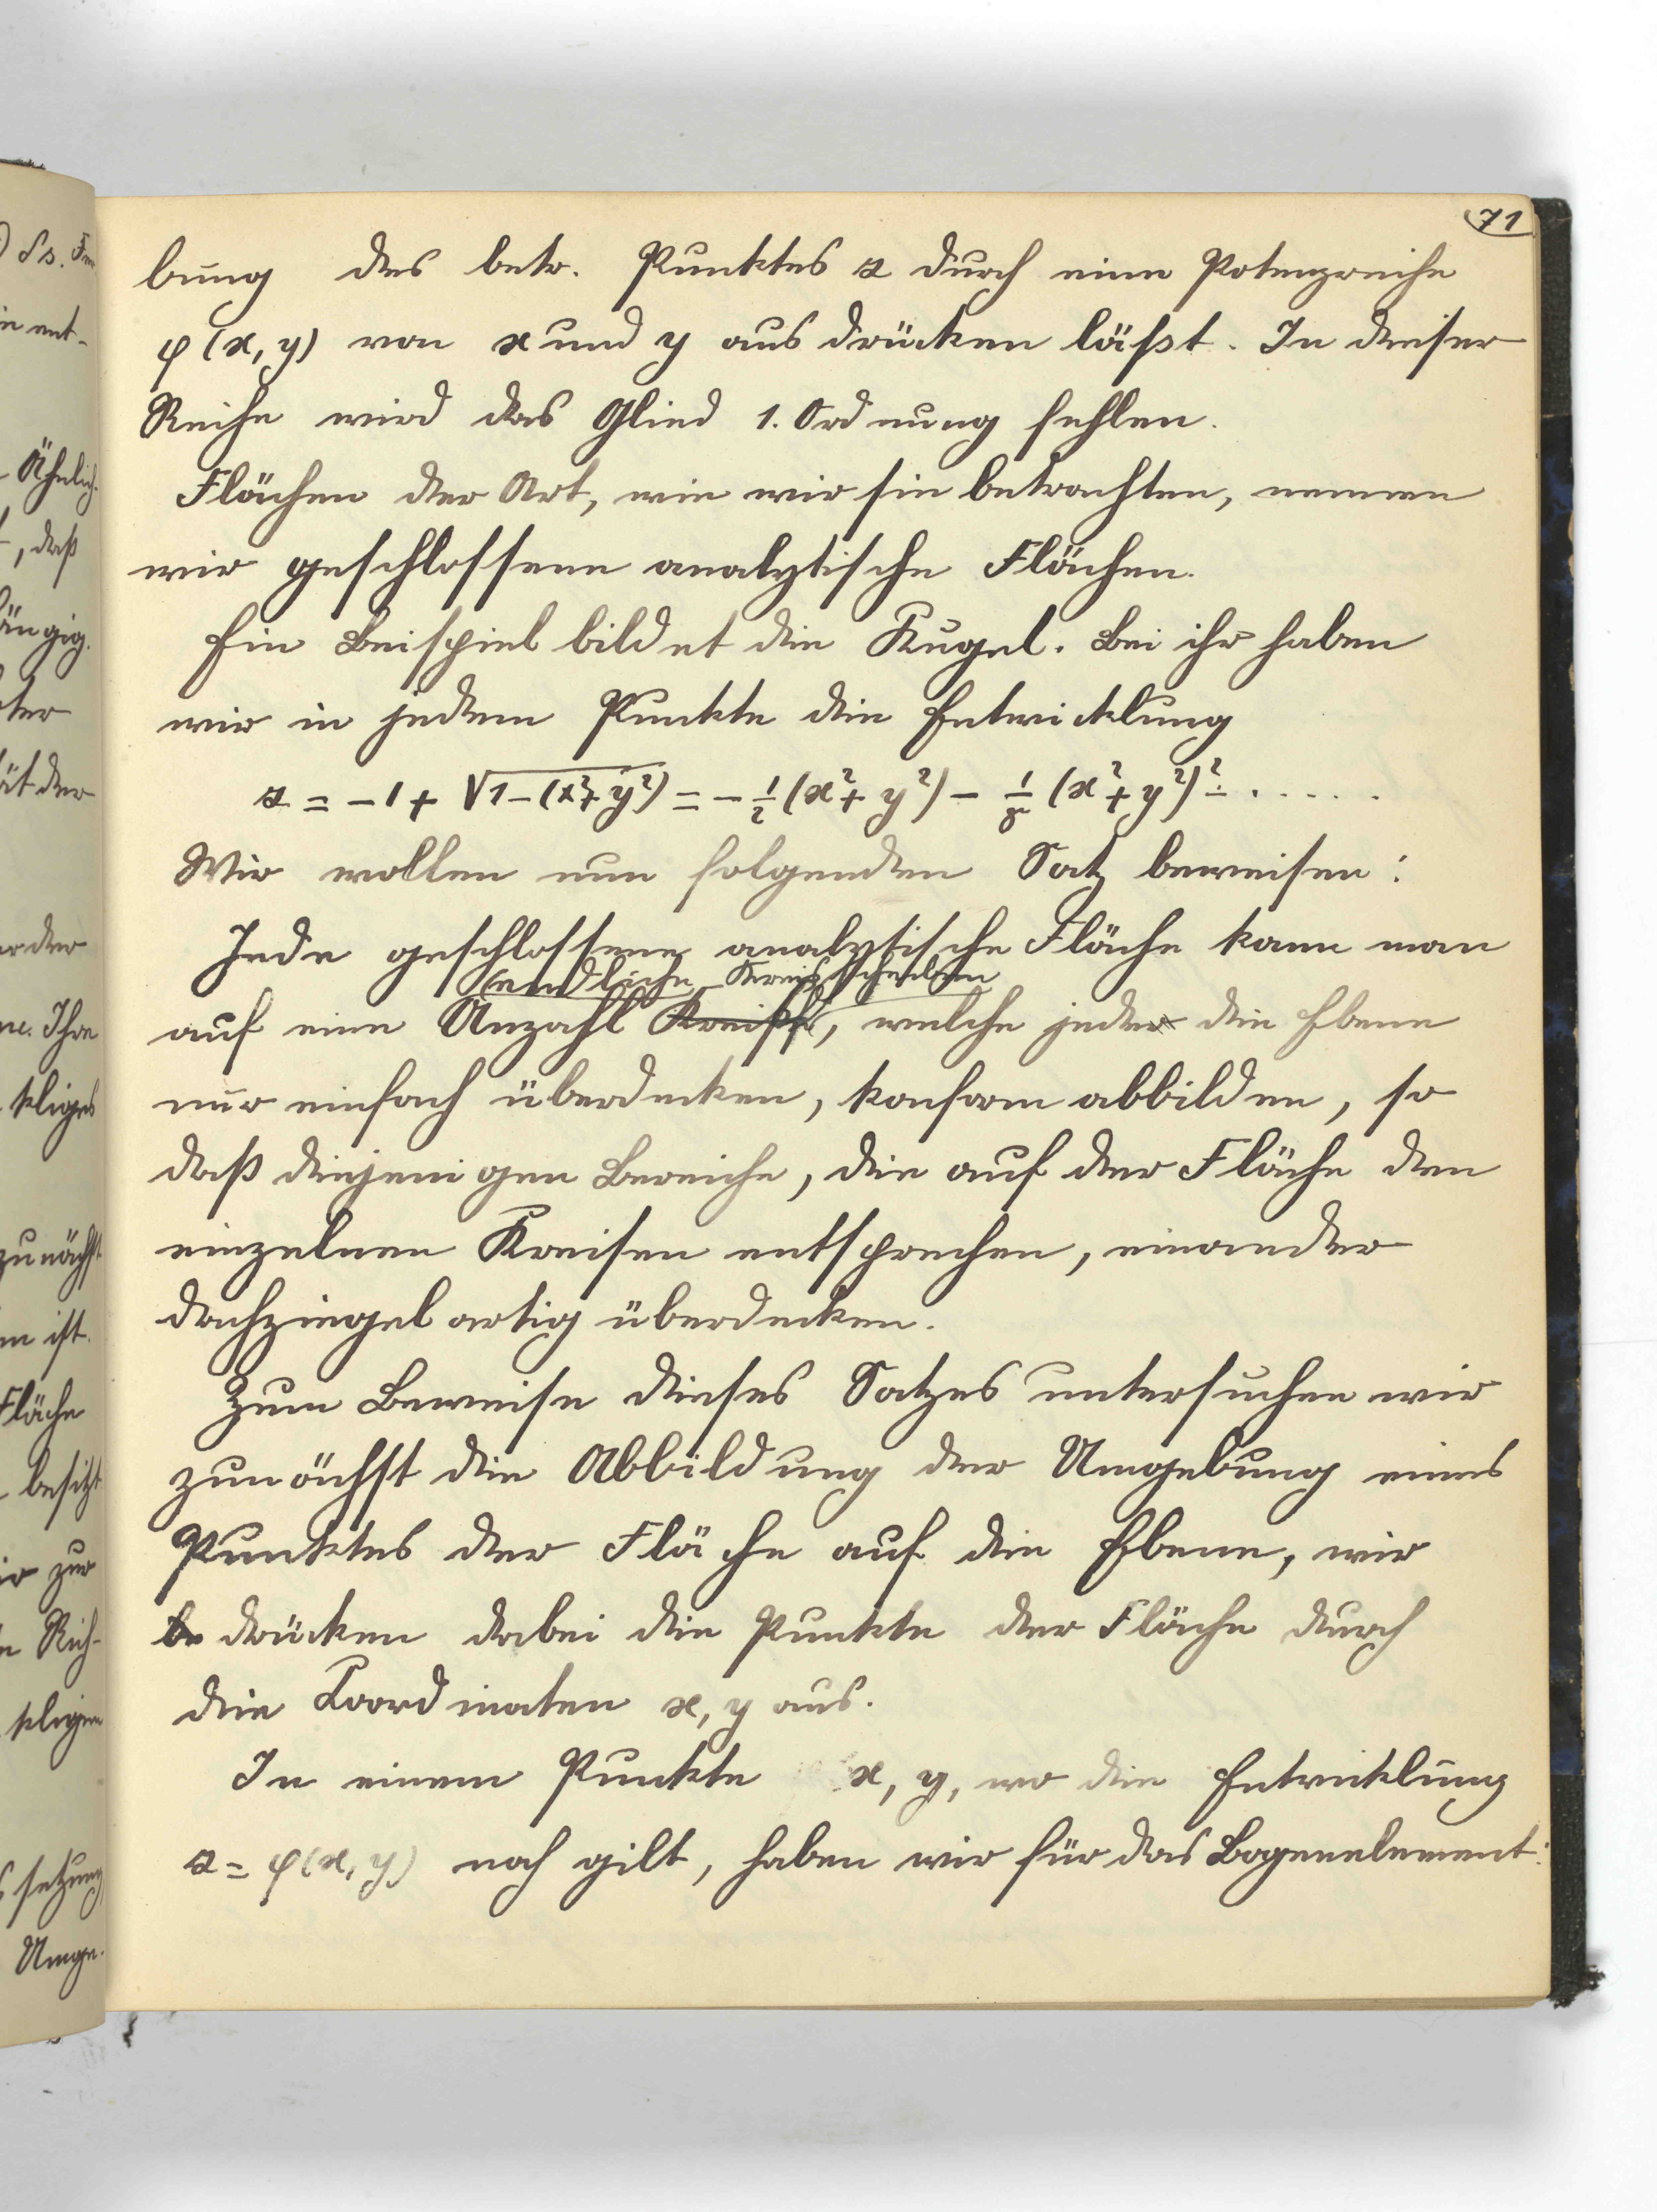 71
bung des betr. Punktes z durch eine Potenzreihe
φ(x, y) von x und y ausdrücken läßt. In dieser
Reihe wird das Glied 1. Ordnung fehlen.
Flächen der Art, wie wir sie betrachten, nennen
wir geschlossene analytische Flächen.
Ein Beispiel bildet die Kugel. Bei ihr haben
wir in jedem Punkte die Entwicklung
z = -1 + √1-(x²+y²) = -½(x²+y²) - ⅛(x²+y²)² - .....
Wir wollen nun folgenden Satz beweisen:
Jede geschlossene analytische Fläche kann man
endliche Kreisscheiben
auf eine Anzahl, welche jede die Ebene
nur einfach überdecken, konform abbilden, so
daß diejenigen Bereiche, die auf der Fläche den
einzelnen Kreisen entsprechen, einander
dachziegelartig überdecken.
Zum Beweise dieses Satzes untersuchen wir
zunächst die Abbildung der Umgebung eines
Punktes der Fläche auf die Ebene, wir
drücken dabei die Punkte der Fläche durch
die Koordinaten x, y aus.
In einem Punkte x, y, wo die Entwicklung
z = φ(x, y) noch gilt, haben wir für das Bogenelement: